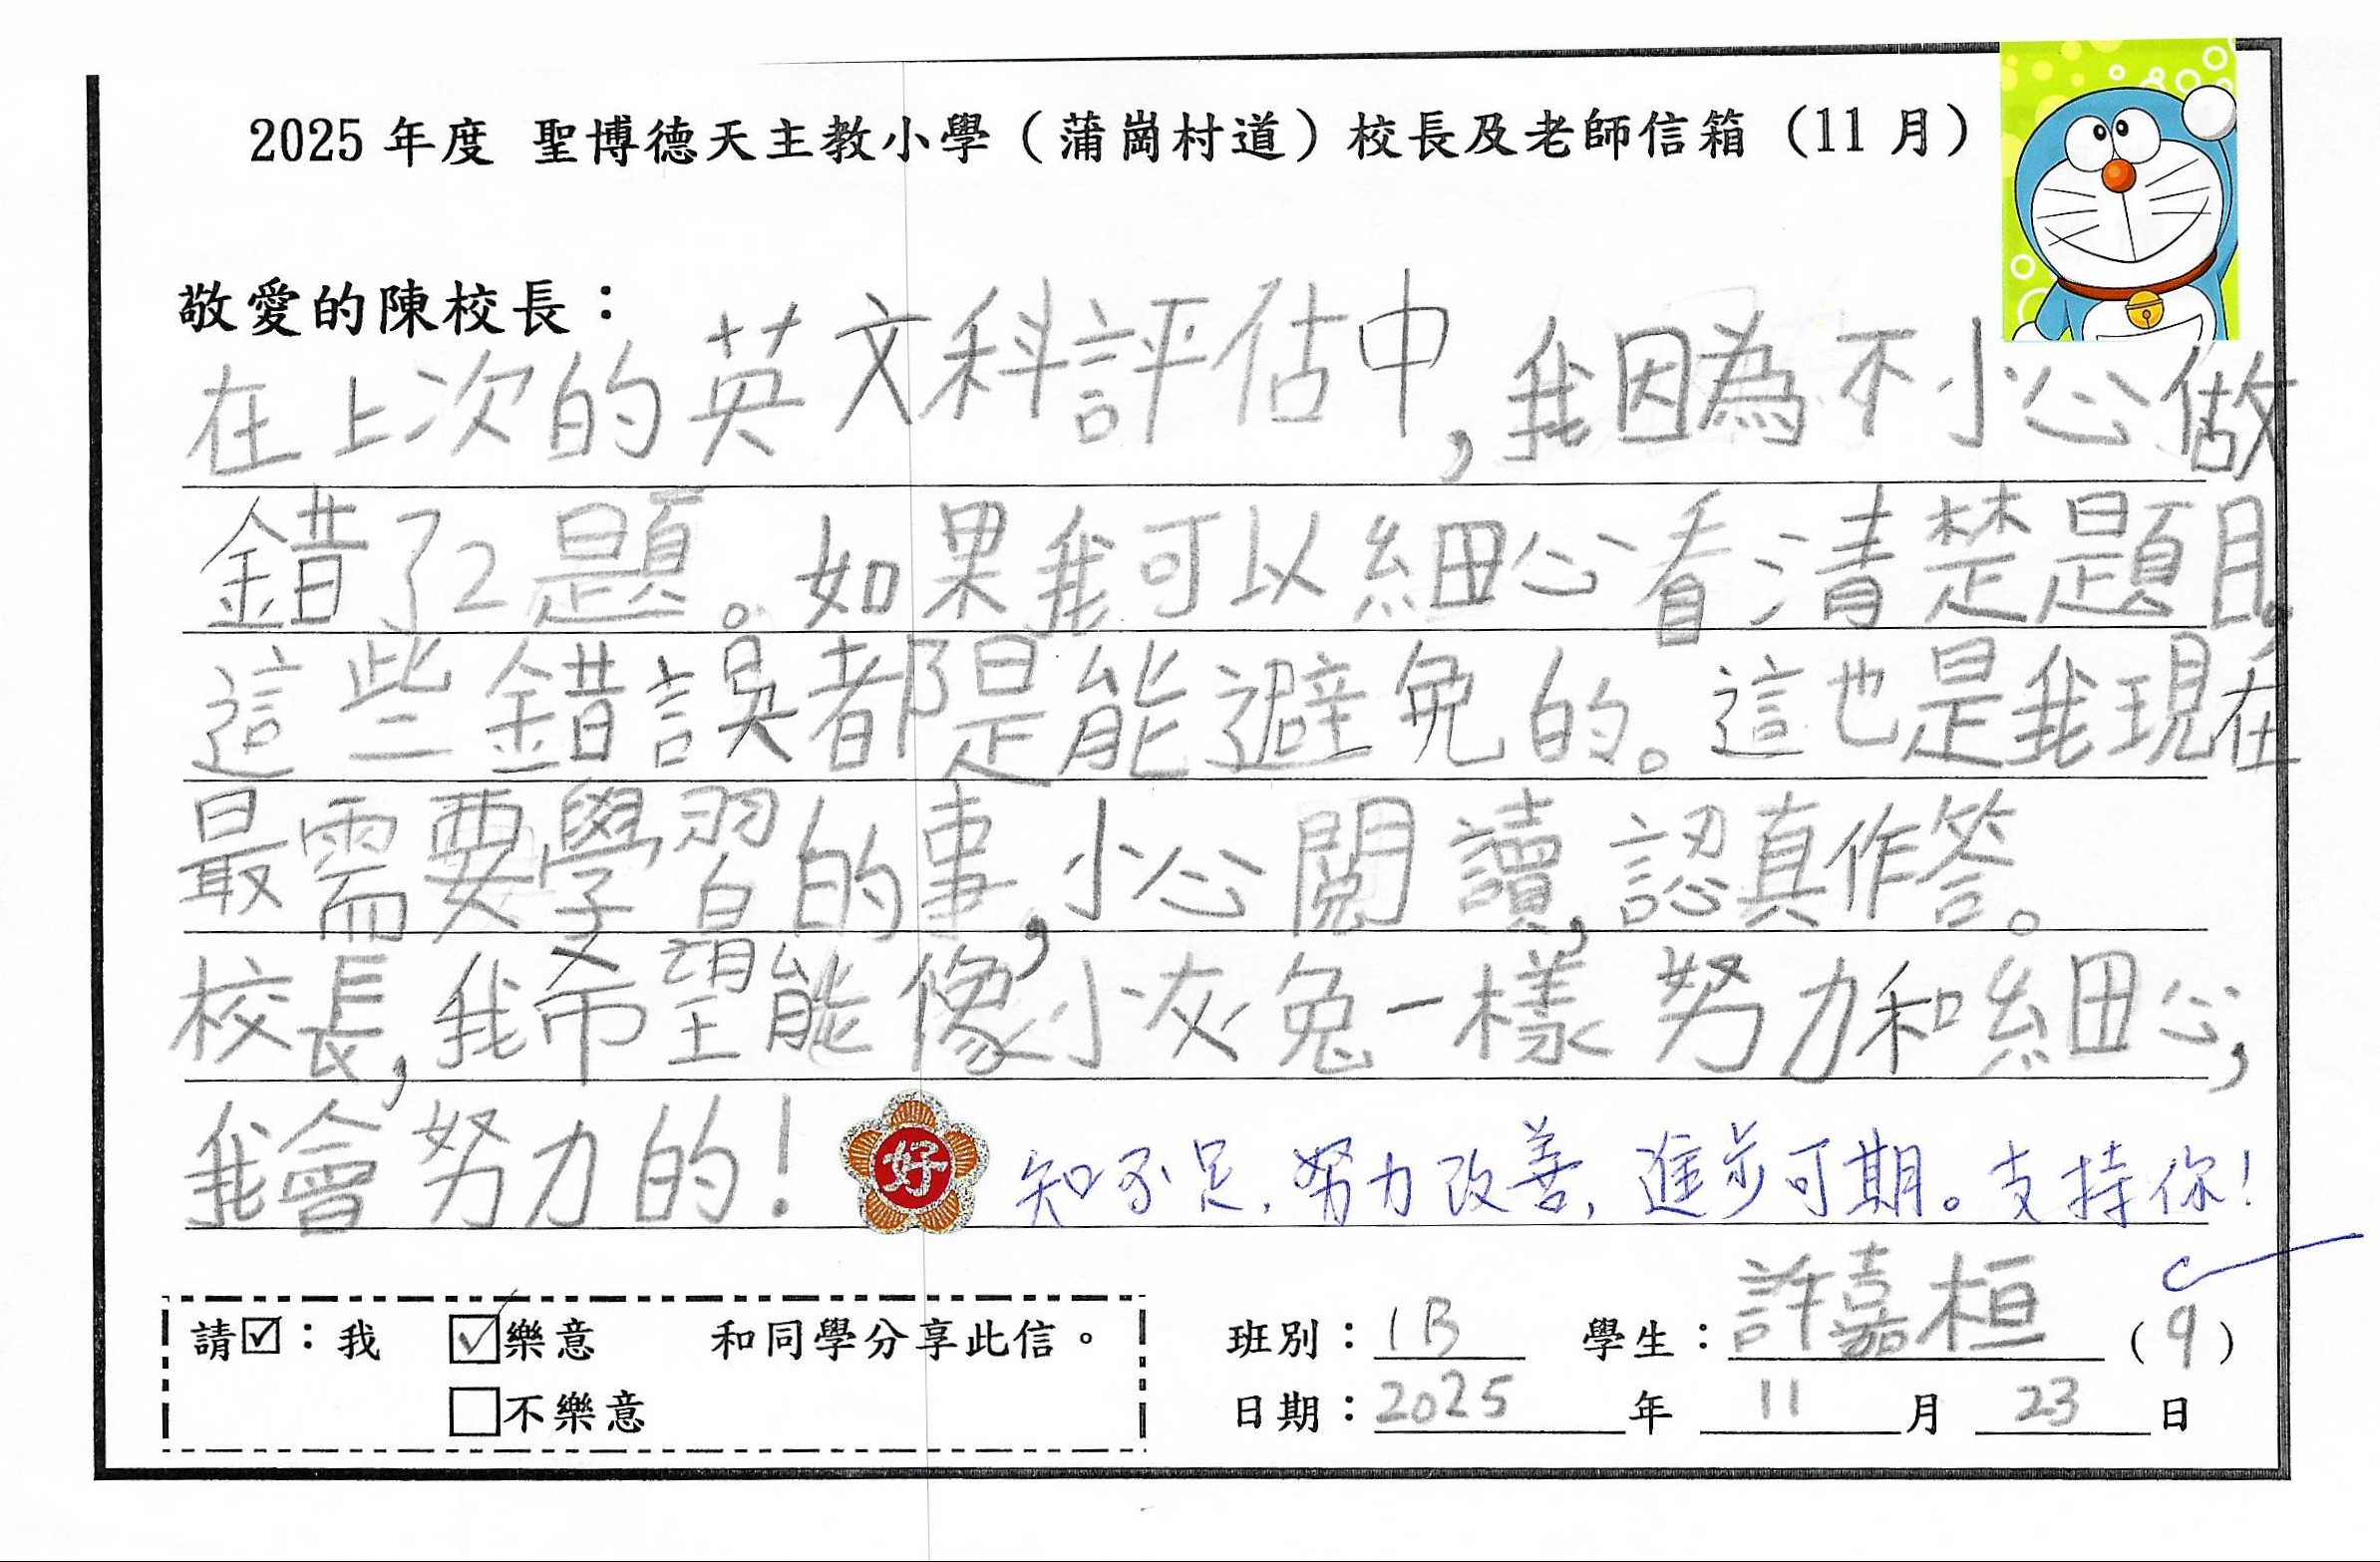 2025 年度 聖博德天主教小學（蒲崗村道）校長及老師信箱（11 月）
敬愛的陳校長：
在上次的英文科評估中,我因為不小心做
錯了2題。如果我可以細心看清楚題目。
這些錯誤都是能避免的。這也是我現在
最需要學習的事,小心閱讀,認真作答。
校長,我希望能像小灰兔一樣努力和細心,
我會努力的！ 好 知不足,努力改善,進步可期。支持你！
請☑：我 ☑樂意 和同學分享此信。 班別：1B 學生：許嘉桓（9）
☐不樂意 日期：2025 年 11 月 23 日